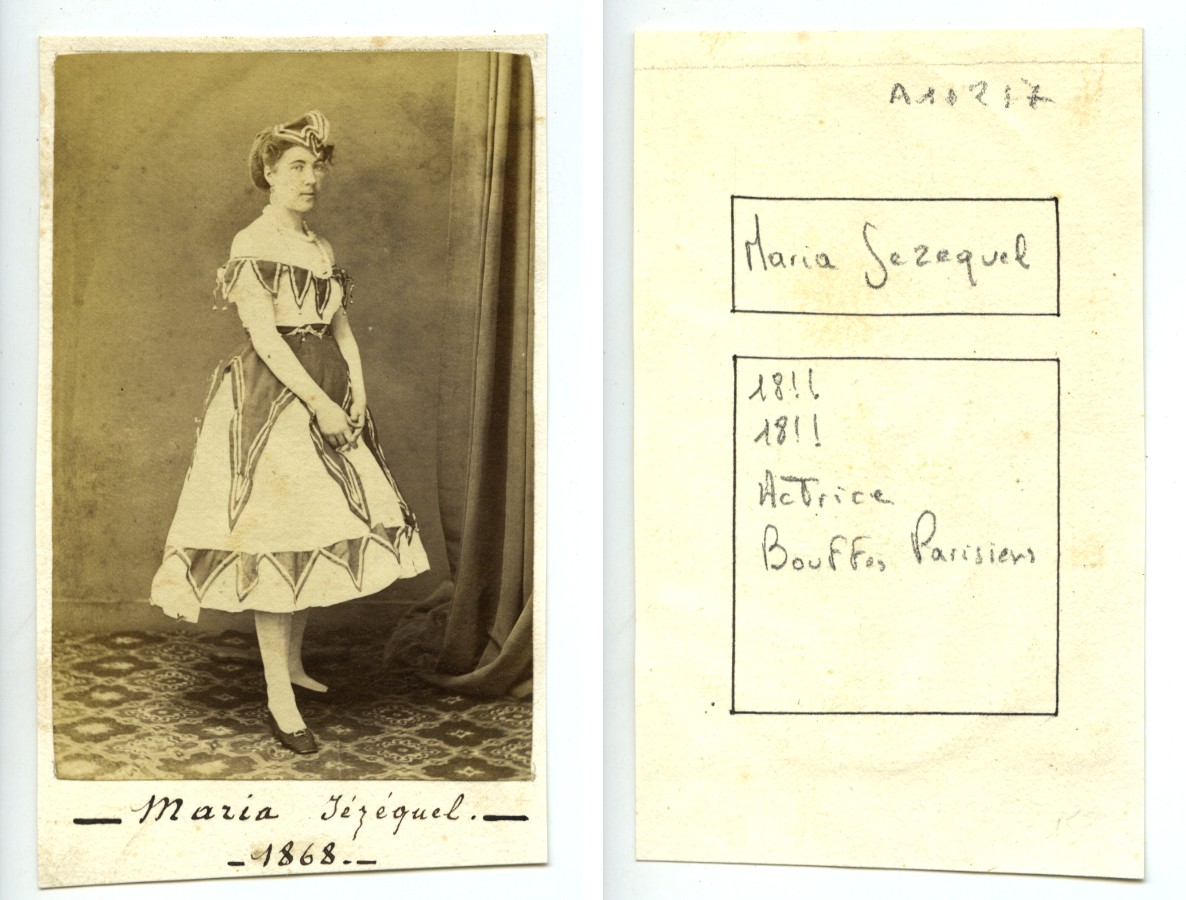 — Maria Jézéquel. —
- 1868. -
Maria Jezequel
18!!
18!!
Actrice
Bouffes Parisiens